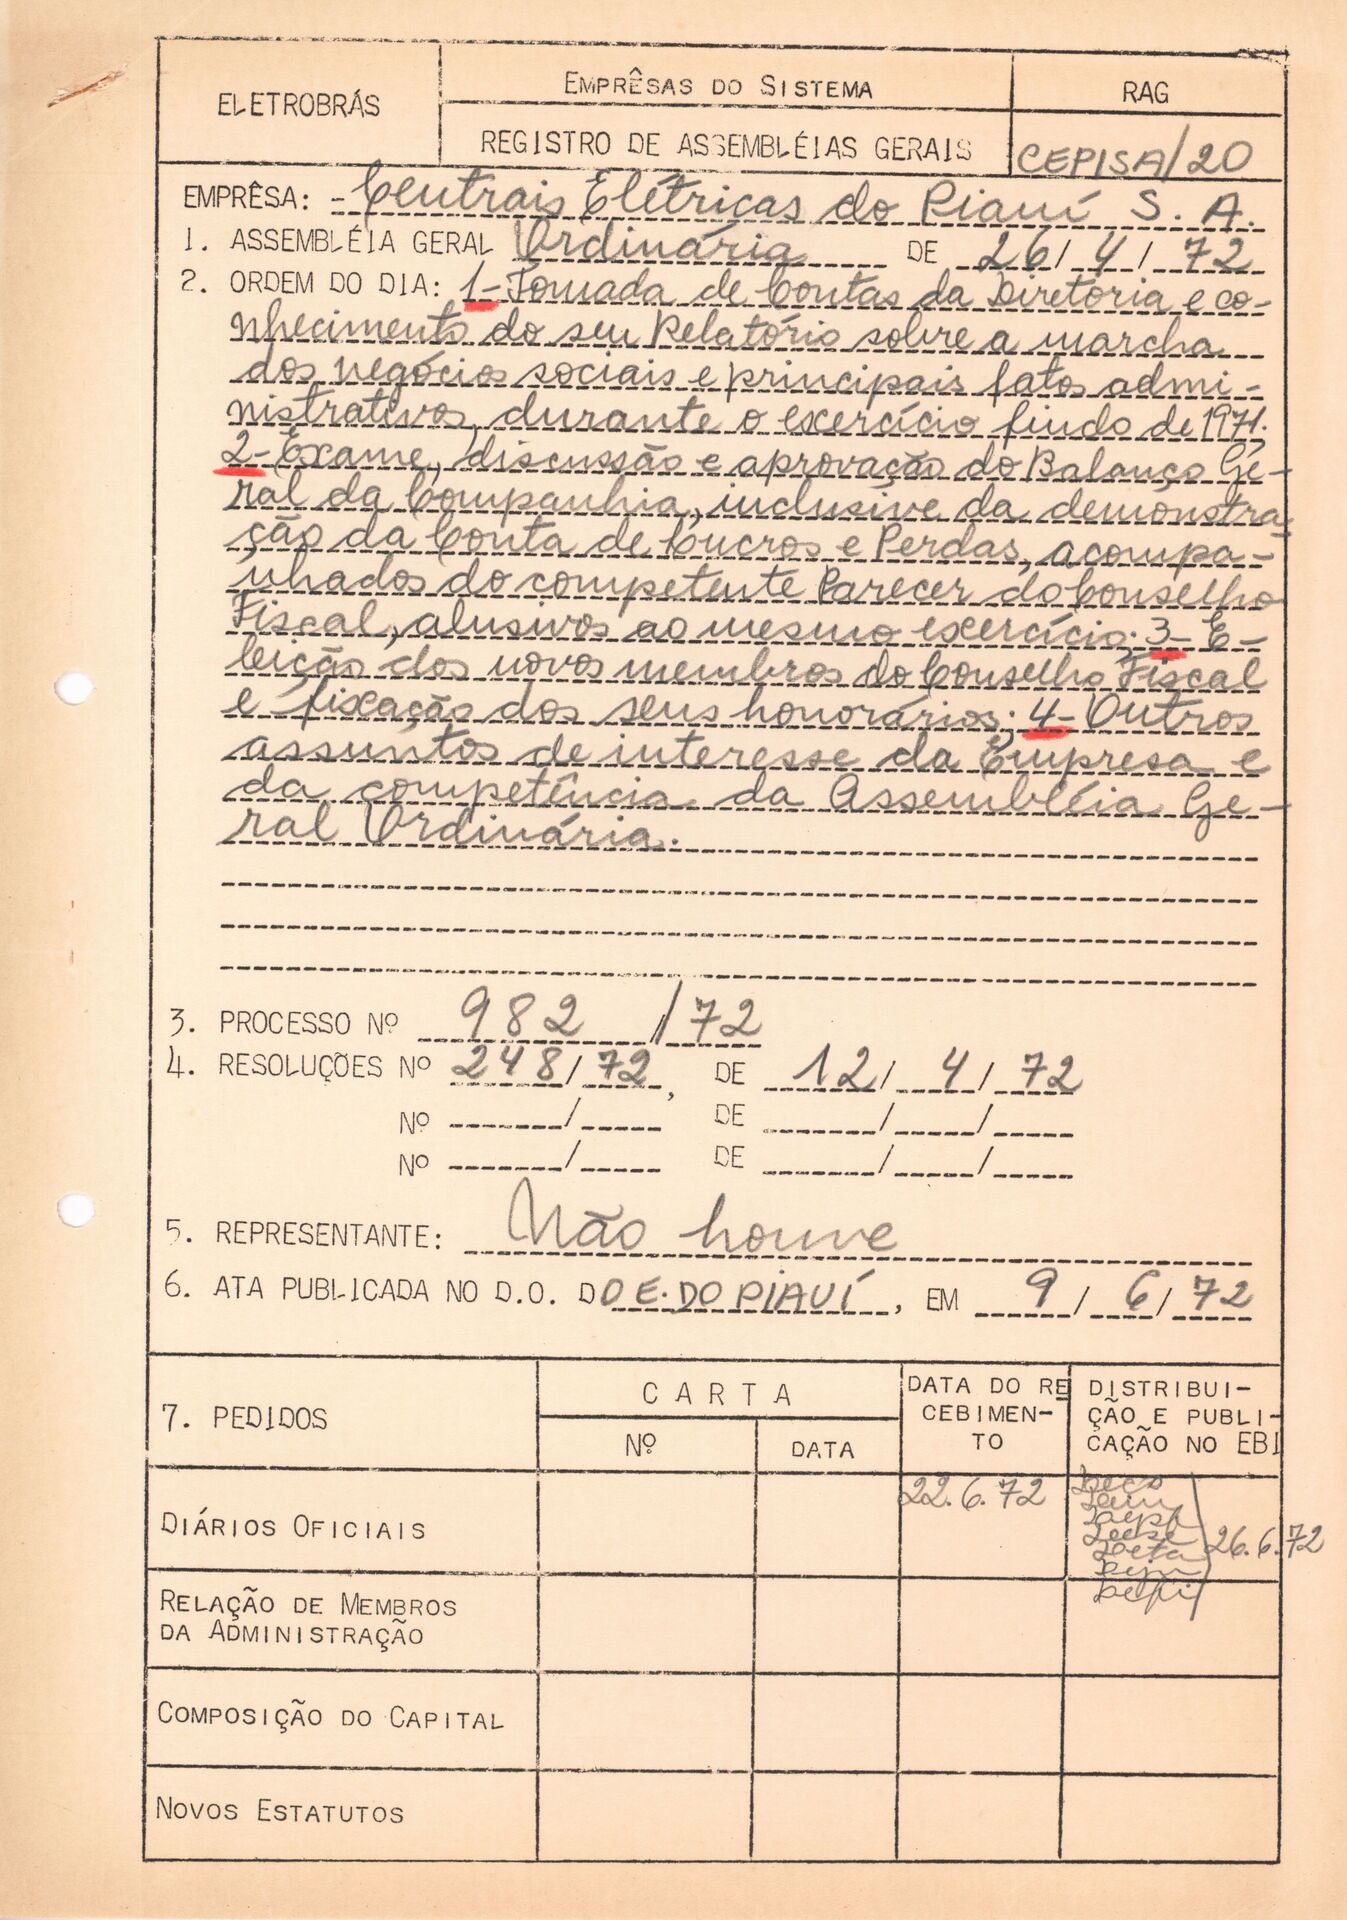 ELETROBRÁS
EMPRÊSAS DO SISTEMA
RAG
REGISTRO DE ASSEMBLÉIAS GERAIS
CEPISA/20
EMPRÊSA: Centrais Elétricas do Piauí S. A.
1. ASSEMBLÉIA GERAL Ordinária DE 26/4/72
2. ORDEM DO DIA: 1- Tomada de Contas da Diretoria e co-
nhecimento do seu Relatório sobre a marcha
dos negócios sociais e principais fatos admi-
nistrativos, durante o exercício findo de 1971.
2- Exame, discussão e aprovação do Balanço Ge-
ral da Companhia, inclusive da demonstra-
ção da Conta de Lucros e Perdas, acompa-
nhados do competente Parecer do Conselho
Fiscal, alusivos ao mesmo exercício; 3- E-
leição dos novos membros do Conselho Fiscal
e fixação dos seus honorários; 4- Outros
assuntos de interesse da Empresa e
da competência da Assembléia Ge-
ral Ordinária.
3. PROCESSO Nº 982/72
4. RESOLUÇÕES Nº 248/72, DE 12/4/72
Nº / DE / /
Nº / DE / /
5. REPRESENTANTE: Não houve
6. ATA PUBLICADA NO D.O. DO E. DO PIAUÍ, EM 9/6/72
7. PEDIDOS
CARTA
Nº
DATA
DATA DO RE
CEBIMEN-
TO
DISTRIBUI-
ÇÃO E PUBLI-
CAÇÃO NO EBI
DIÁRIOS OFICIAIS
22.6.72
26.6.72
RELAÇÃO DE MEMBROS
DA ADMINISTRAÇÃO
COMPOSIÇÃO DO CAPITAL
NOVOS ESTATUTOS